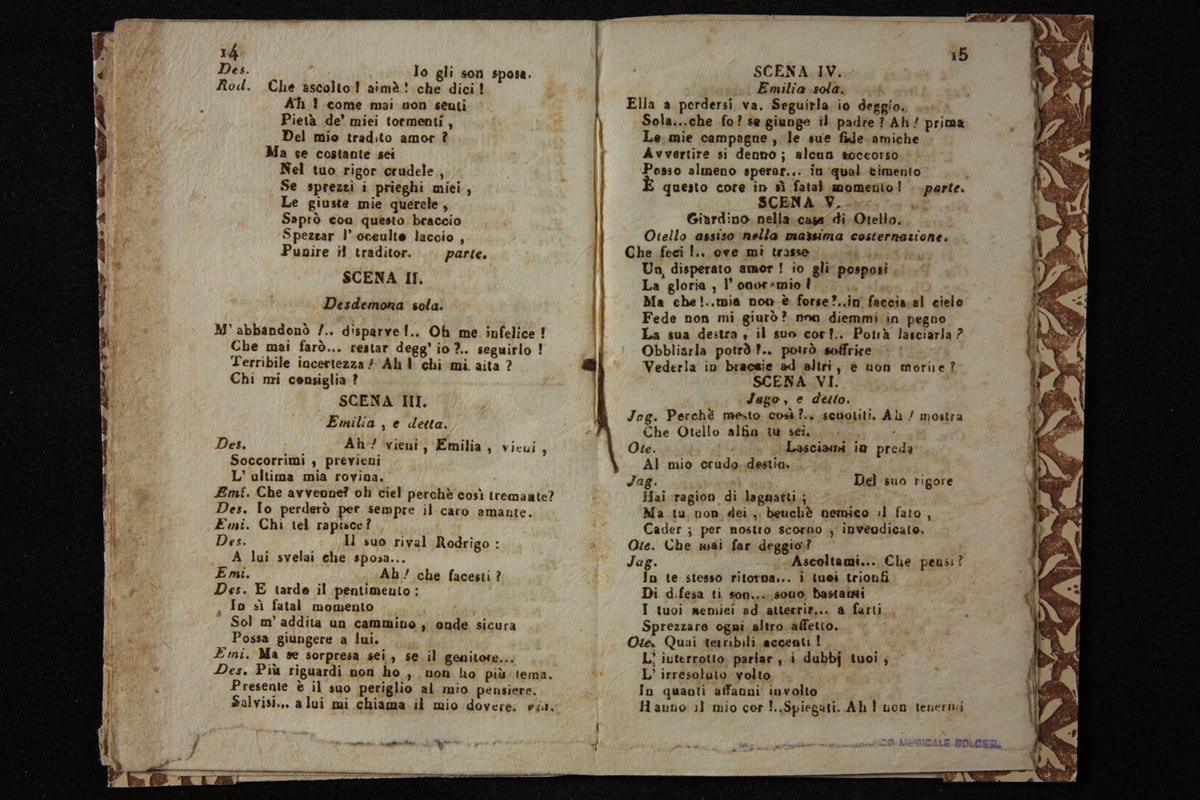 14
Des. Io gli son sposa.
Rod. Che ascolto! aimè! che dici!
Ah! come mai non senti
Pietà de' miei tormenti,
Del mio tradito amor?
Ma se costante sei
Nel tuo rigor crudele,
Se sprezzi i prieghi miei,
Le giuste mie querele,
Saprò con questo braccio
Spezzar l'occulto laccio,
Punire il traditor. parte.
SCENA II.
Desdemona sola.
M'abbandonò!.. disparve!.. Oh me infelice!
Che mai farò... restar degg'io?.. seguirlo!
Terribile incertezza! Ah! chi mi aita?
Chi mi consiglia?
SCENA III.
Emilia, e detta.
Des. Ah! vieni, Emilia, vieni,
Soccorrimi, previeni
L'ultima mia rovina.
Emi. Che avvenne? oh ciel perchè così tremante?
Des. Io perderò per sempre il caro amante.
Emi. Chi tel rapisce?
Des. Il suo rival Rodrigo:
A lui svelai che sposa...
Emi. Ah! che facesti?
Des. E tardo il pentimento:
In sì fatal momento
Sol m'addita un cammino, onde sicura
Possa giungere a lui.
Emi. Ma se sorpresa sei, se il genitore...
Des. Più riguardi non ho, non ho più tema.
Presente è il suo periglio al mio pensiere.
Salvisi... a lui mi chiama il mio dovere. via.
15
SCENA IV.
Emilia sola.
Ella a perdersi va. Seguirla io deggio.
Sola...che fo? se giunge il padre? Ah! prima
Le mie campagne, le sue fide amiche
Avvertire si denno; alcun soccorso
Posso almeno sperar... in qual cimento
È questo core in sì fatal momento! parte.
SCENA V.
Giardino nella casa di Otello.
Otello assiso nella massima costernazione.
Che feci!.. ove mi trasse
Un disperato amor! io gli posposi
La gloria, l'onor mio!
Ma che!..mia non è forse?..in faccia al cielo
Fede non mi giurò? non diemmi in pegno
La sua destra, il suo cor?.. Potrà lasciarla?
Obbliarla potrò?.. potrò soffrire
Vederla in braccio ad altri, e non morire?
SCENA VI.
Jago, e detto.
Jag. Perchè mesto così?.. scuotiti. Ah! mostra
Che Otello alfin tu sei.
Ote. Lasciami in preda
Al mio crudo destin.
Jag. Del suo rigore
Hai ragion di lagnarti;
Ma tu non dei, benchè nemico il fato,
Cader; per nostro scorno, invendicato.
Ote. Che mai far deggio?
Jag. Ascoltami... Che pensi?
In te stesso ritorna... i tuoi trionfi
Di difesa ti son... sono bastanti
I tuoi nemici ad atterrir... a farti
Sprezzare ogni altro affetto.
Ote. Quai terribili accenti!
L'interrotto parlar, i dubbj tuoi,
L'irresoluto volto
In quanti affanni involto
Hanno il mio cor!..Spiegati. Ah! non tenermi
MUSICALE